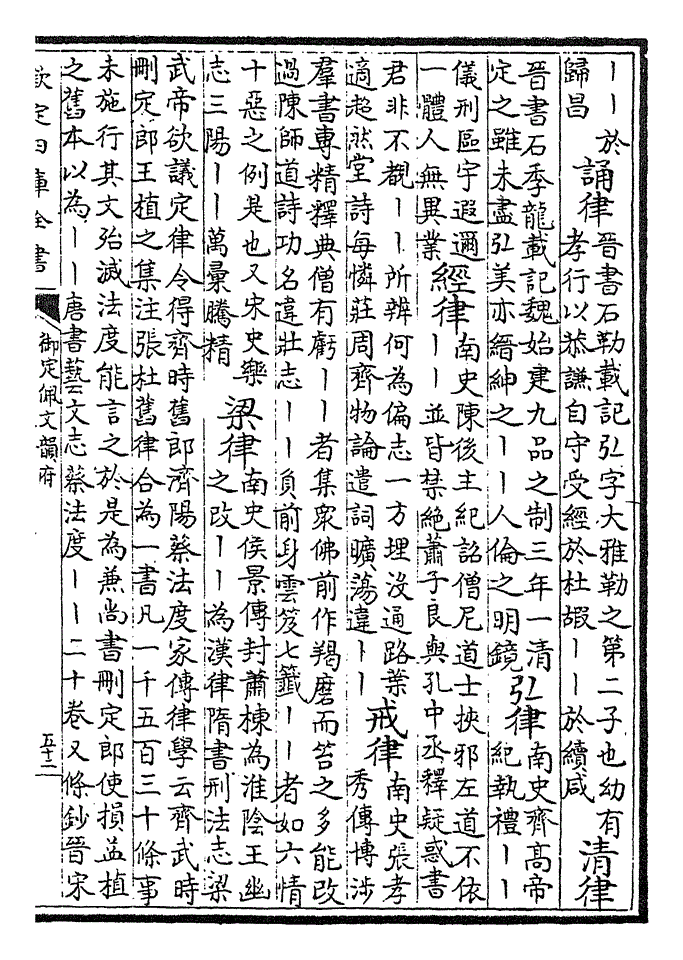 丨丨於
歸昌
誦律
晉書石勒載記弘字大雅勒之第二子也幼有
孝行以恭謙自守受經於杜嘏丨丨於續咸
清律
晉書石季龍載記魏始建九品之制三年一清
定之雖未盡弘美亦縉紳之丨丨人倫之明鏡
弘律
南史齊髙帝
紀執禮丨丨
儀刑區宇遐邇
一體人無異業
經律
南史陳後主紀詔僧尼道士挾邪左道不依
丨丨並皆禁絶蕭子良與孔中丞釋疑惑書
君非不覩丨丨所辨何為偏志一方埋没通路葉
適超然堂詩每憐莊周齊物論遣詞曠蕩違丨丨
戒律
南史張孝
秀傳博涉
羣書專精釋典僧有虧丨丨者集衆佛前作羯磨而笞之多能改
過陳師道詩功名違壯志丨丨負前身雲笈七籤丨丨者如六情
十惡之例是也又宋史樂
志三陽丨丨萬彙騰精
梁律
南史侯景傳封蕭棟為淮陰王幽
之改丨丨為漢律隋書刑法志梁
武帝欲議定律令得齊時舊郎濟陽蔡法度家傳律學云齊武時
刪定郎王植之集注張杜舊律合為一書凡一千五百三十條事
未施行其文殆滅法度能言之於是為兼尚書刪定郎使損益植
之舊本以為丨丨唐書藝文志蔡法度丨丨二十卷又條鈔晉宋
欽定四庫全書
御定佩文韻府
五十二